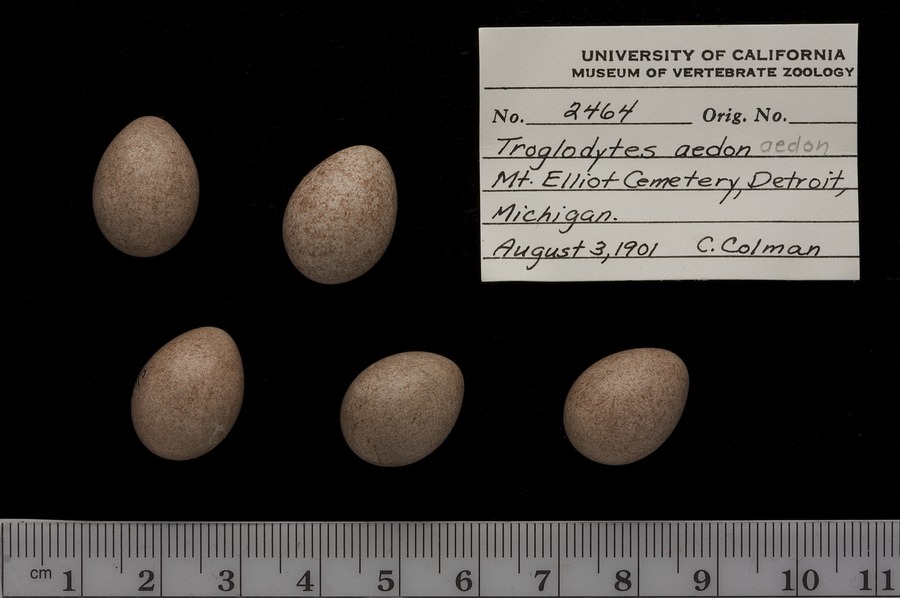 UNIVERSITY OF CALIFORNIA
MUSEUM OF VERTEBRATE ZOOLOGY
No. 2464 Orig. No.
Troglodytes aedon aedon
Mt. Elliot Cemetery, Detroit,
Michigan.
August 3, 1901 C. Colman
cm 1 2 3 4 5 6 7 8 9 10 11